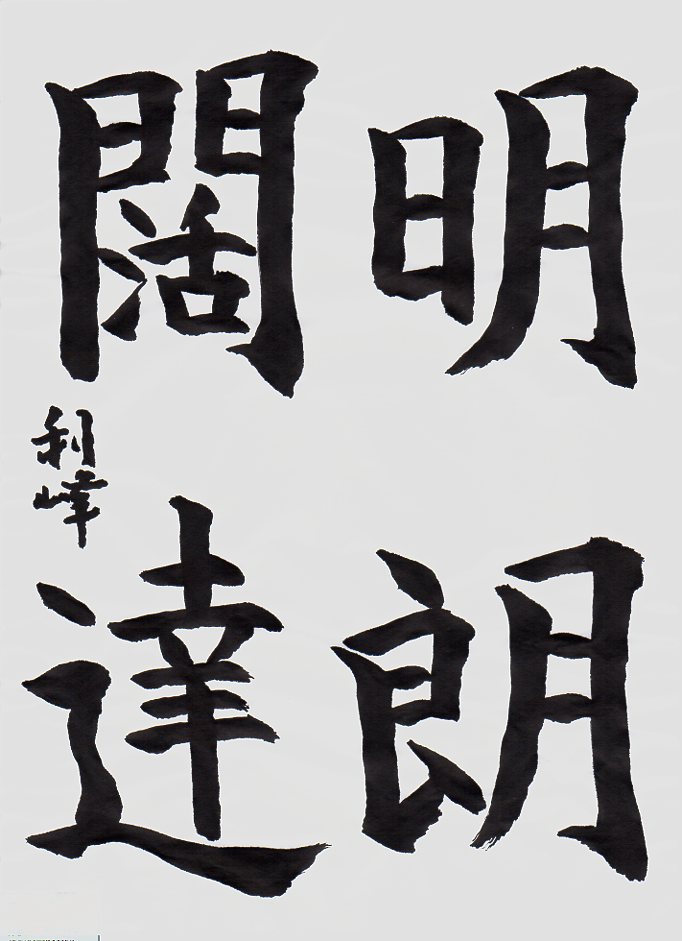 明朗
闊達
利峰